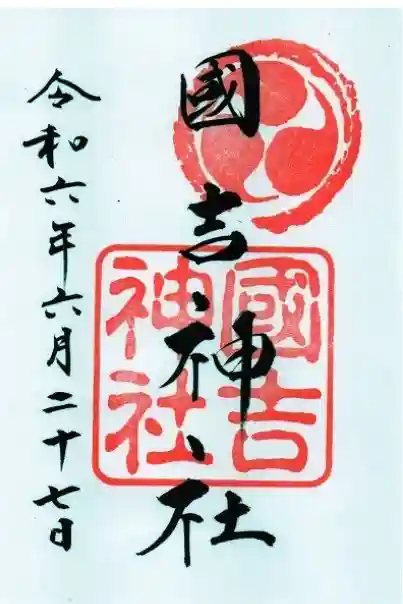 國吉神社
國吉
神社
令和六年六月二十七日